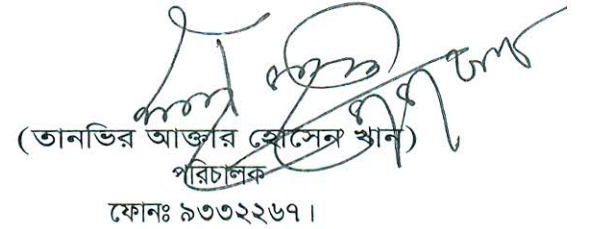 (তানভির আক্তার হোসেন খান)
পরিচালক
ফোনঃ ৯৩৩২২৬৭।